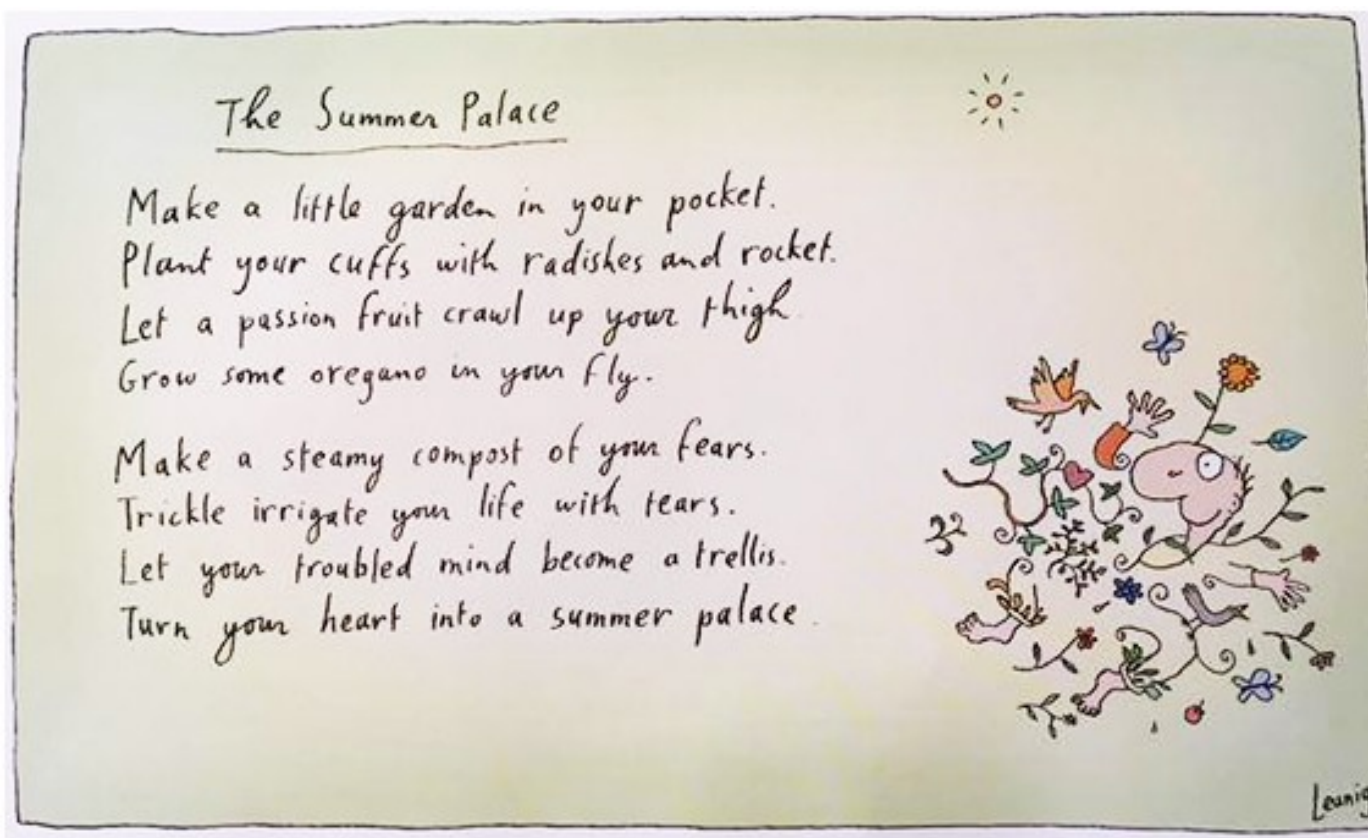 The Summer Palace
Make a little garden in your pocket.
Plant your cuffs with radishes and rocket.
Let a passion fruit crawl up your thigh
Grow some oregano in your fly.
Make a steamy compost of your fears.
Trickle irrigate your life with tears.
Let your troubled mind become a trellis.
Turn your heart into a summer palace.
Leunig